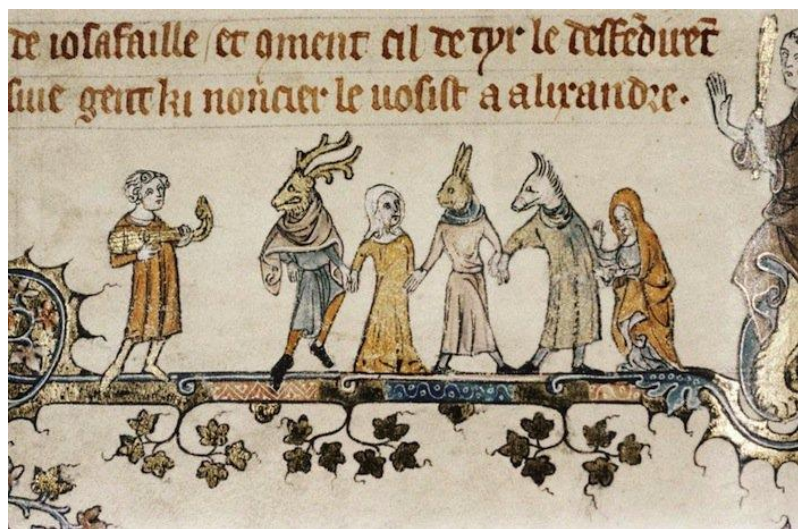 de iosafaille et qment cil de tyr le deffēdiret̄
siue gent ki noncier le uosist a alixandre.